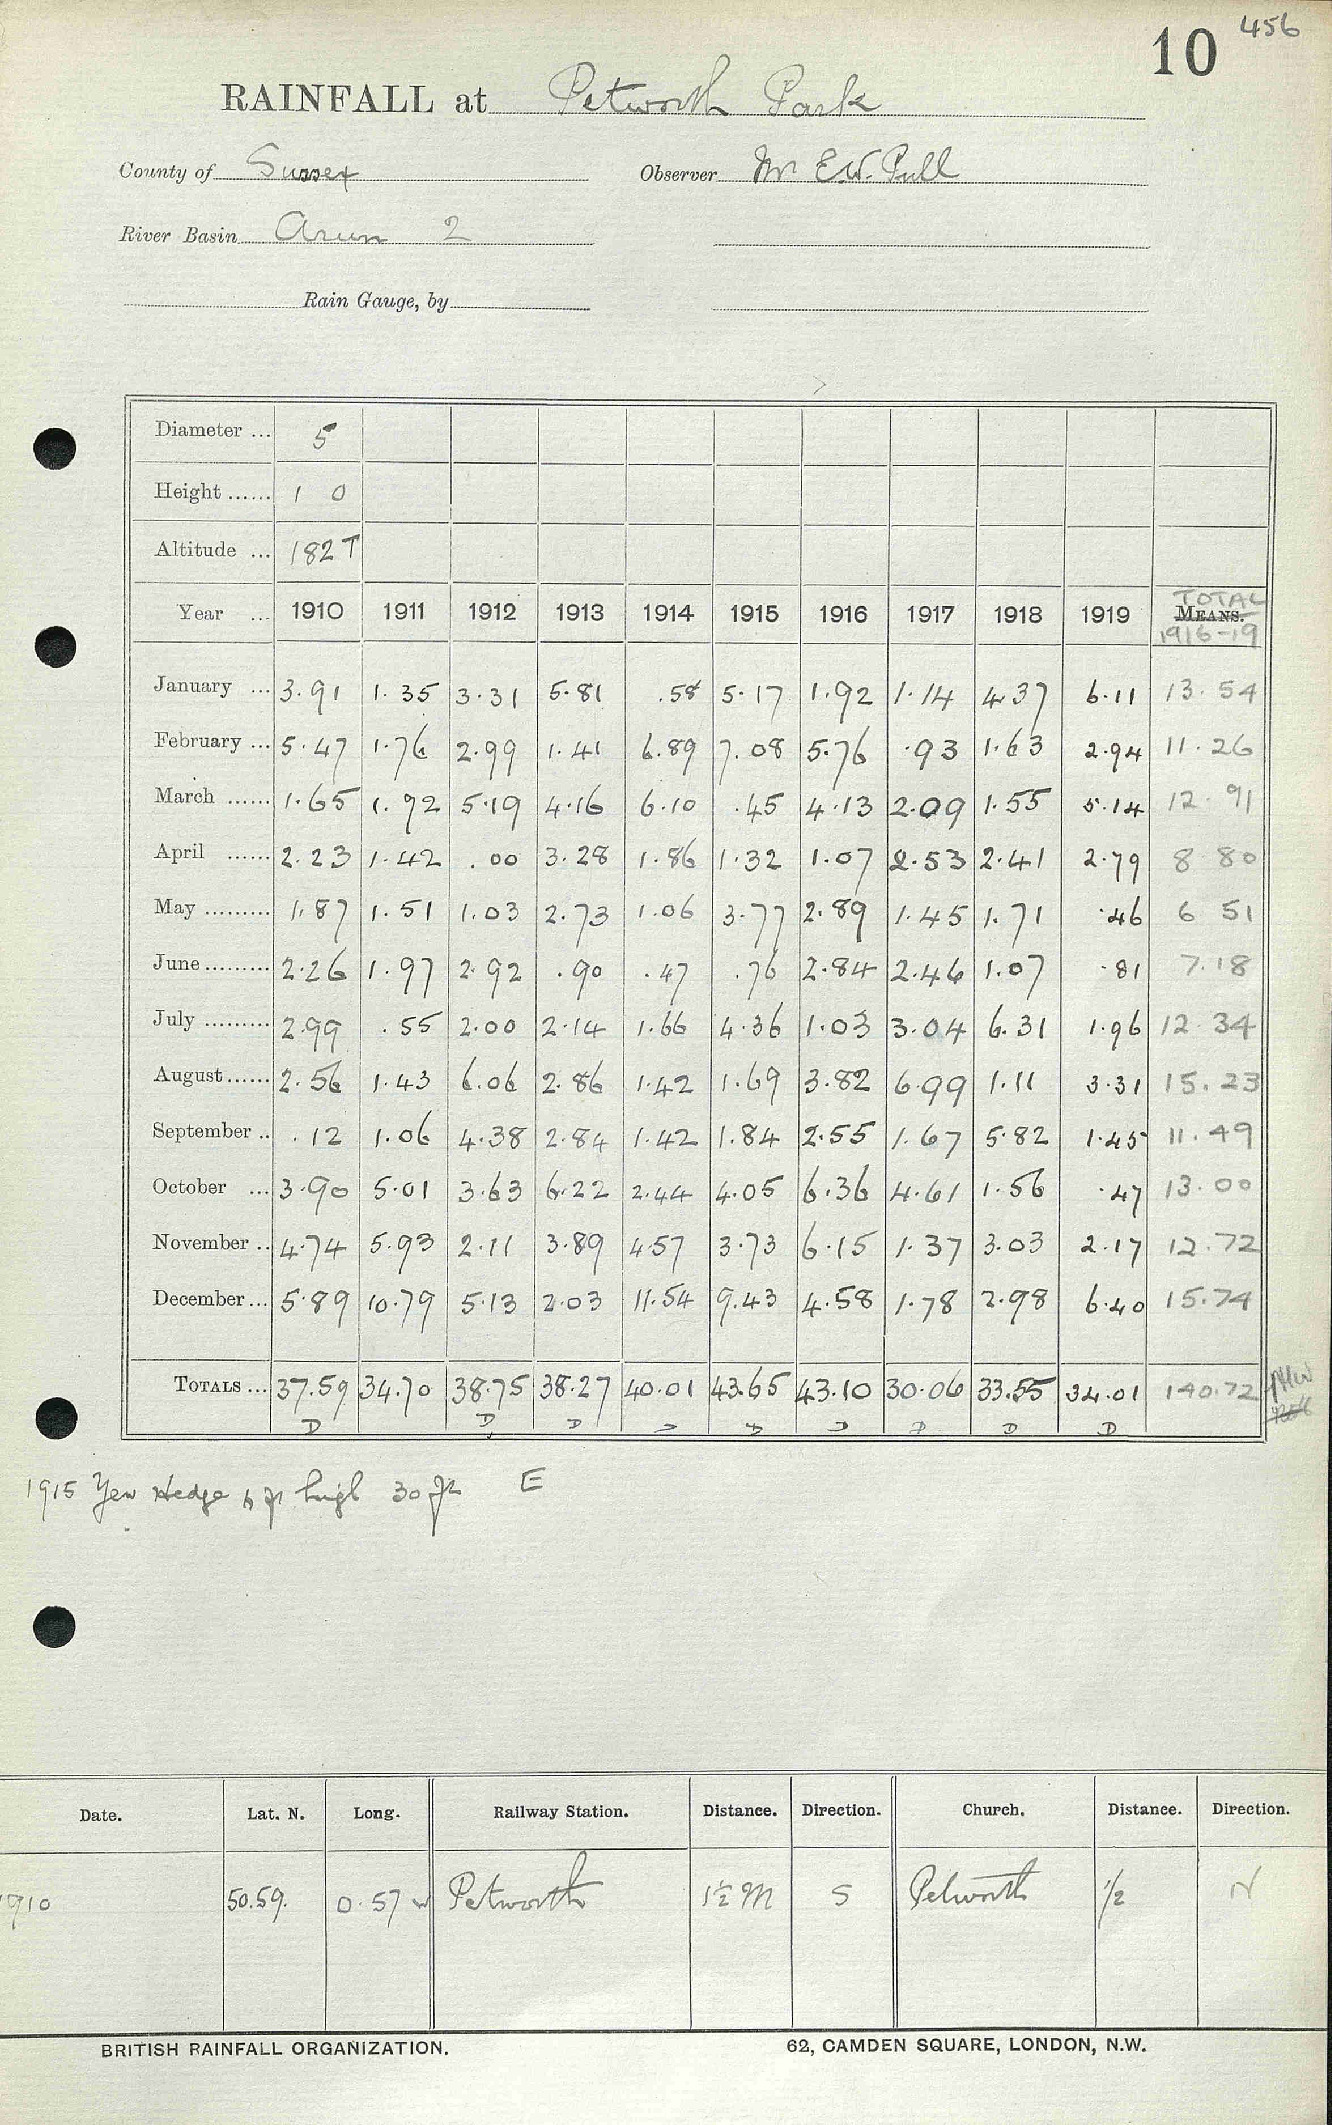 10 456
RAINFALL at Petworth Park
County of Sussex Observer Mr E.W. Pull
River Basin Arun 2
Rain Gauge, by
Diameter ... 5
Height ...... 1 0
Altitude ... 182 T
Year ... 1910 1911 1912 1913 1914 1915 1916 1917 1918 1919 TOTAL MEANS. 1916-19
January ... 3.91 1.35 3.31 5.81 .58 5.17 1.92 1.14 4.37 6.11 13.54
February ... 5.47 1.76 2.99 1.41 6.89 7.08 5.76 .93 1.63 2.94 11.26
March ...... 1.65 1.92 5.19 4.16 6.10 .45 4.13 2.09 1.55 5.14 12.91
April ...... 2.23 1.42 .00 3.28 1.86 1.32 1.07 2.53 2.41 2.79 8 80
May ......... 1.87 1.51 1.03 2.73 1.06 3.77 2.89 1.45 1.71 .46 6 51
June ......... 2.26 1.97 2.92 .90 .47 .76 2.84 2.46 1.07 .81 7.18
July ......... 2.99 .55 2.00 2.14 1.66 4.36 1.03 3.04 6.31 1.96 12 34
August ...... 2.56 1.43 6.06 2.86 1.42 1.69 3.82 6.99 1.11 3.31 15.23
September .. .12 1.06 4.38 2.84 1.42 1.84 2.55 1.67 5.82 1.45 11.49
October ... 3.90 5.01 3.63 6.22 2.44 4.05 6.36 4.61 1.56 .47 13.00
November .. 4.74 5.93 2.11 3.89 4.57 3.73 6.15 1.37 3.03 2.17 12.72
December ... 5.89 10.79 5.13 2.03 11.54 9.43 4.58 1.78 2.98 6.40 15.74
TOTALS ... 37.59 34.70 38.75 38.27 40.01 43.65 43.10 30.06 33.55 34.01 140.72
D D D D D D D D D
1915 Yew Hedge 6 ft high 30 ft E
Date. Lat. N. Long. Railway Station. Distance. Direction. Church. Distance. Direction.
1910 50.59. 0.57 W Petworth 1½ M S Petworth 1/2 N
BRITISH RAINFALL ORGANIZATION. 62, CAMDEN SQUARE, LONDON, N.W.